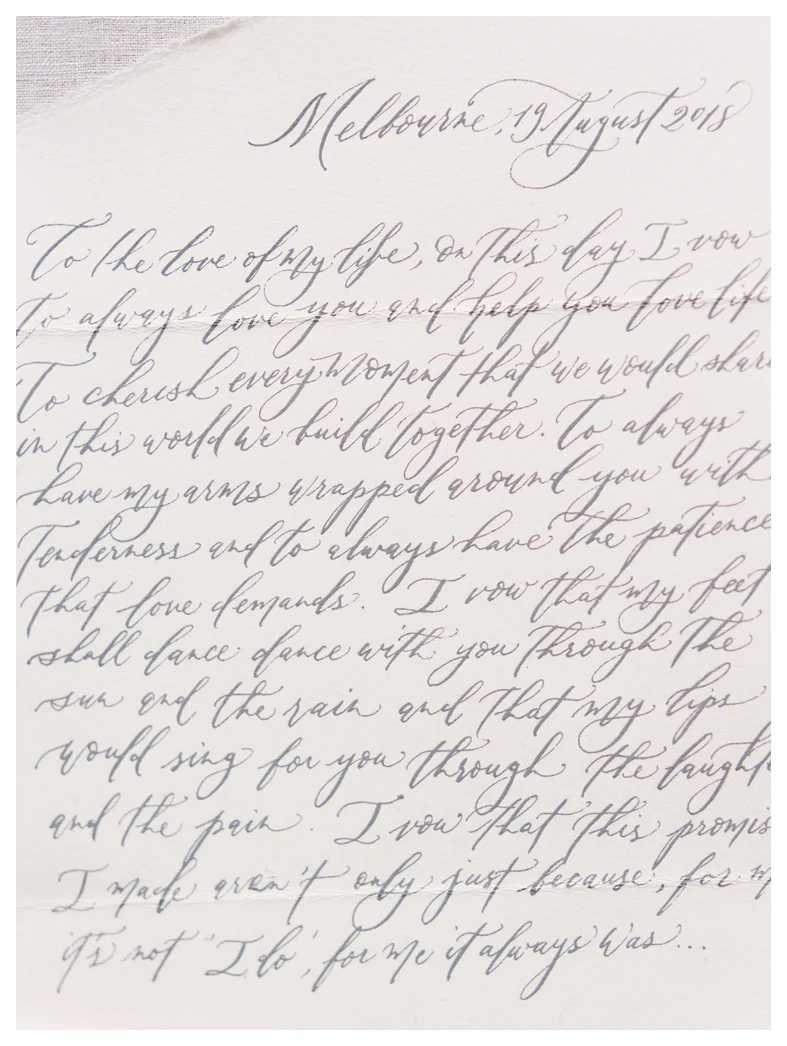 Melbourne, 19 August 2018
To the love of my life, on this day I vow
to always love you and help you love life
To cherish every moment that we would share
in this world we build together. To always
have my arms wrapped around you with
Tenderness and to always have the patience
that love demands. I vow that my feet
shall dance dance with you through the
sun and the rain and that my lips
would sing for you through the laught
and the pain. I vow that this promis
I made aren't only just because, for m
it's not "I do', for me it always was...